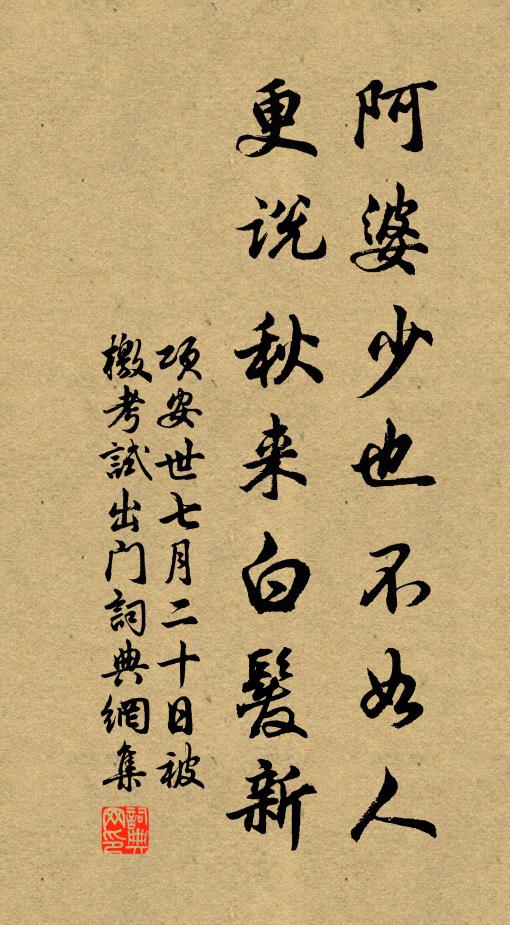 阿婆少也不如人
更说秋来白髮新
项安世七月二十日被
檄考試出门詞典網集
詞典
网印